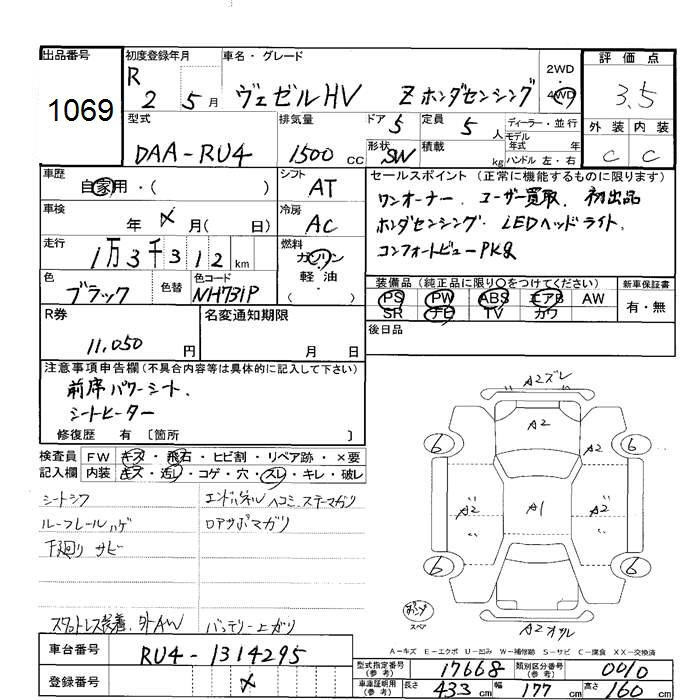 出品番号 1069
初度登録年月 R 2 5月
車名・グレード ヴェゼルHV Z ホンダセンシング
2WD・4WD
評価点 3.5
外装 内装
C C
型式 DAA-RU4
排気量 1500 CC
ドア 5
定員 5 人
形状 SW
積載 kg
ディーラー・並行
モデル年式 年
ハンドル 左・右
車歴 自家用・( )
シフト AT
車検 年 月( 日)
冷房 AC
走行 1万3千312 km
燃料 ガソリン・軽油 ( )
色 ブラック
色替
色コード NH731P
セールスポイント (正常に機能するものに限ります)
ワンオーナー、ユーザー買取、初出品
ホンダセンシング・LEDヘッドライト、
コンフォートビューPKG
装備品(純正品に限り○をつけてください)
PS PW ABS エアB AW
SR ナビ TV カワ
新車保証書 有・無
後日品
R券 11,050 円
名変通知期限 月 日
注意事項申告欄(不具合内容等は具体的に記入して下さい)
前席パワーシート、
シートヒーター
修復歴 有 〔箇所 〕
検査員記入欄
FW キズ・飛石・ヒビ割・リペア跡・×要
内装 キズ・汚レ・コゲ・穴・スレ・キレ・破レ
シートシワ
ルーフレールハゲ
下廻りサビ
エンドパネルヘコミ、ステーマガリ
ロアサポマガリ
スタットレス装着、外AW
バッテリー上ガリ
A2ズレ
A2
A2
6 6
A2 A1 A2
6 6
スペア
A2オクレ
A−キズ E−エクボ U−凹み W−補修跡 S−サビ C−腐食 XX−交換済
車台番号 RU4-1314295
登録番号
型式指定番号(参考) 17668
類別区分番号(参考) 0010
車庫証明用(参考) 長さ 433 cm 幅 177 cm 高さ 160 cm